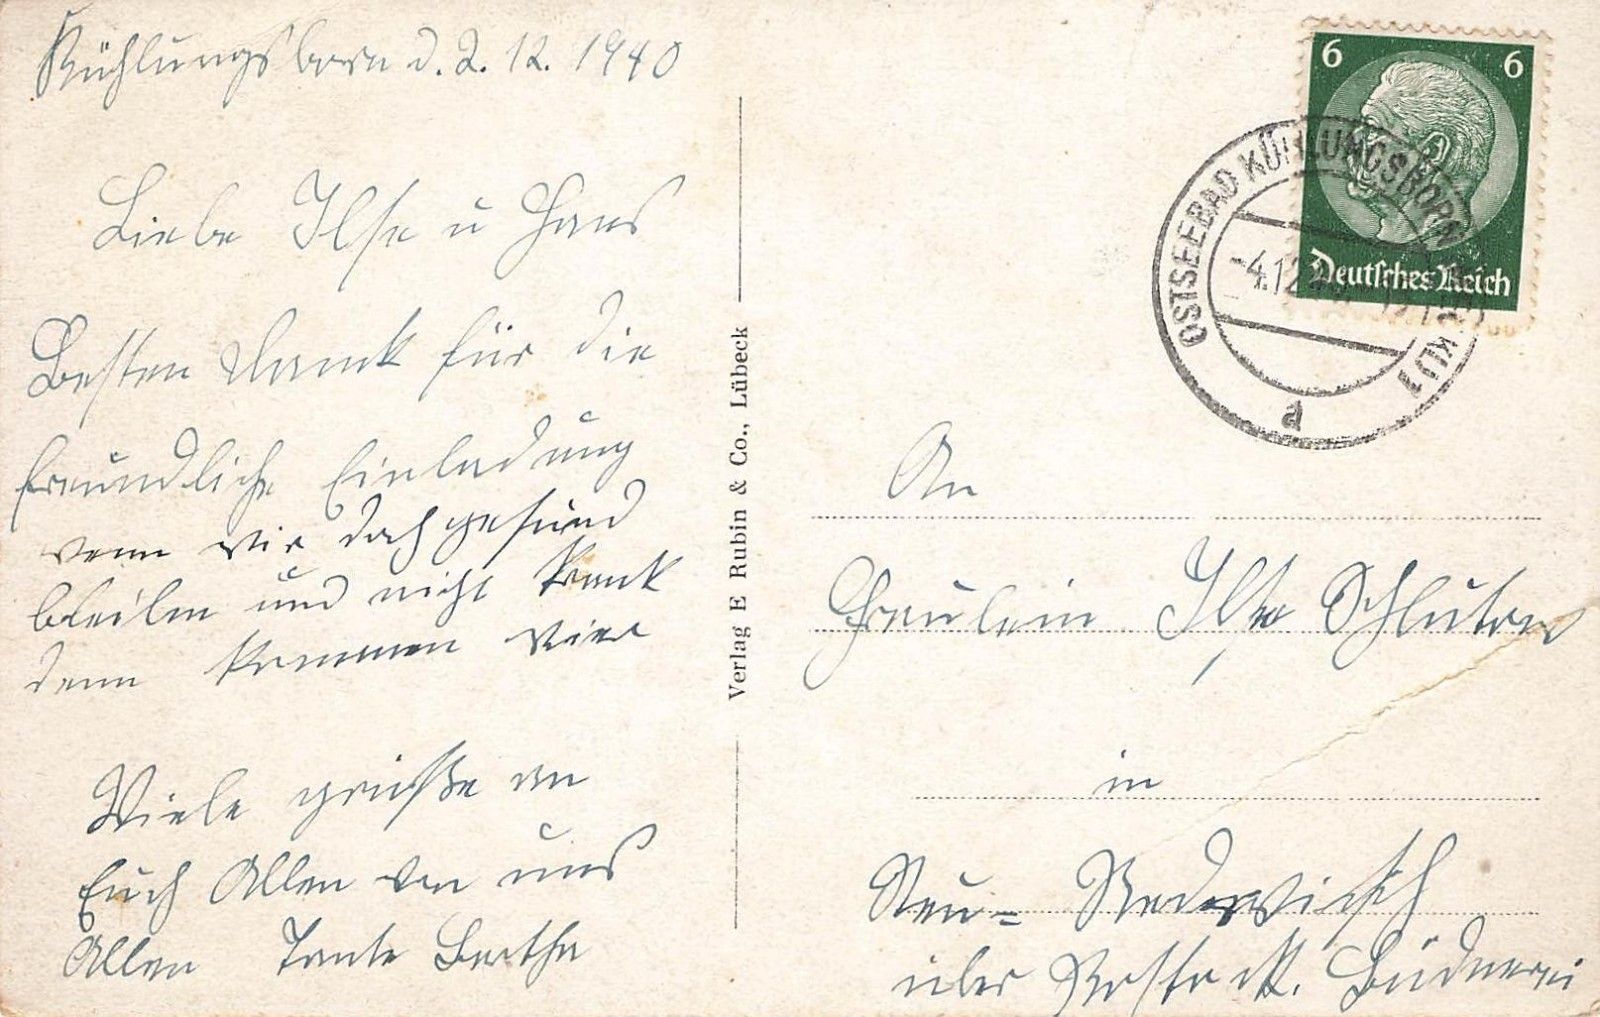 Kühlungsborn d. 2. 12. 1940
Liebe Ilse u Hans
Besten Dank für die
freundliche Einladung
wenn wir doch gesund
bleiben und nicht krank
denn kommen wier
Viele grüße an
Euch Allen von uns
Allen Tante Bertha
Verlag E Rubin & Co., Lübeck
6 6
Deutsches Reich
OSTSEEBAD KÜHLUNGSBORN
-4.12.
a
An
Fräulein Ilse Schlüter
in
Neu=
über Rostock. Büdnerei